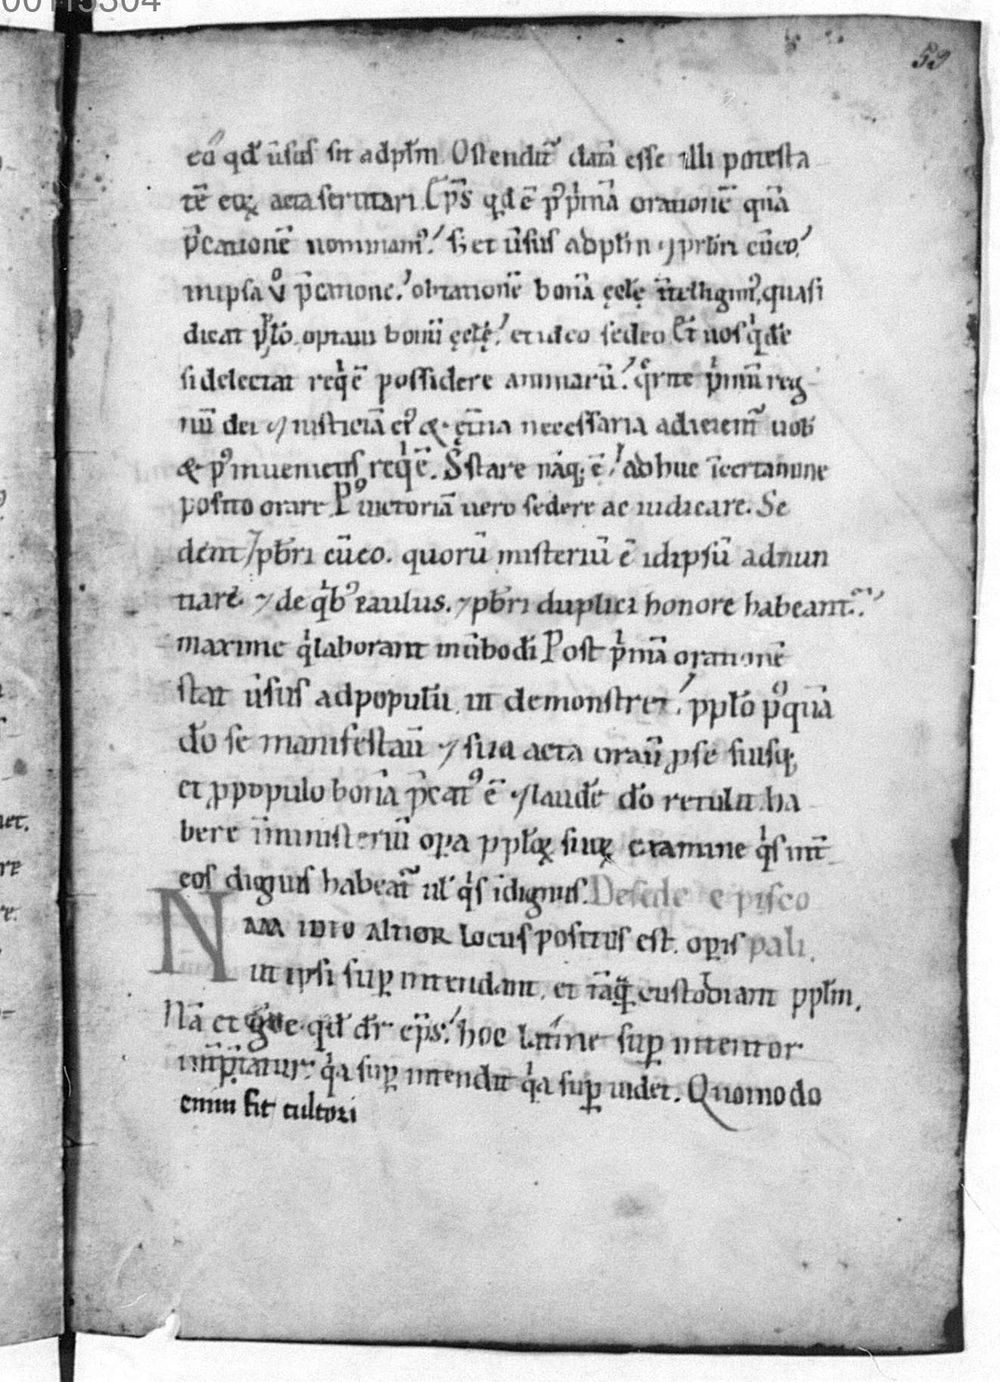 59
eo qd̄ ūsus sit ad pplm̄. Ostendit̄ datā esse illi potesta
tē eoꝝ acta scrutari. Ep̄s qd ē p᷒ p̍mā orationē quā
p̄cationē nominam᷒ ; et ūsus ad pplm̄ ⁊ prb̄ri cū eo.
in ipsa v̊ p̄catione. obtationē bonā ęcłę intelligim᷒, quasi
dicat pplō. optaui bonū ęcłę. et ideo sedeo. Et uos q̍ dē
si delectat req̍ē possidere animarū. q̄rite p̍mū reg
nū dei ⁊ iusticiā ei᷒ & cętera necessaria adicient̄ uob
& p᷒ inuenietis req̍ē. Stare nāq; ē adhuc ī certamine
posito orare. P᷒ uictoriā uero sedere ac iudicare. Se
dent ⁊ pb̄ri cū eo. quorū misteriū ē id ipsū adnun
tiare. ⁊ de q̍b᷒ paulus. ⁊ pb̄ri duplici honore habeant̄.
maxime q̍ laborant in ūbo dī. Post p̍mā orationē
stat ūsus ad populū. ut demonstret. pplō p᷒quā
dō se manifestauī ⁊ sua acta orauī ꝓ se suisq;
et ꝓ populo bonā p̄cat᷒ ē ⁊ laudē dō retulit. ha
bere in ministeriū opa pplōꝝ suoꝝ examine q̍s int̄
eos dignus habeat̄ ul̄ q̍s idignus. De sede episco
Nam ideo altior locus positus est. opis pali.
ut ipsi sup̱ intendant. et tāq̄ custodiant pplm̄.
Nā et gr̄ce. qd̄ dr̄ ep̄s. hoc latine sup̱ intentor
int̄p̄tatur. q̍a sup̱ intendit q̍a sup̱ uidet. Quomodo
enim fit cultori